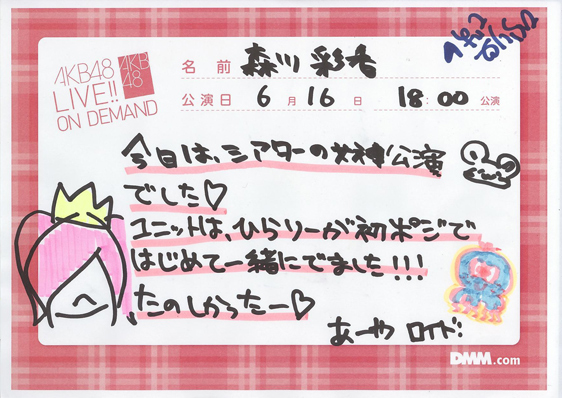 AKB48
LIVE!!
ON DEMAND
AKB
48
名前 森川彩香
公演日 6月16日 18:00公演
今日は、シアターの女神公演
でした♡
ユニットは、ひらりーが初ポジで
はじめて一緒にでました!!!
たのしかったー♡
あーや ロイド!
DMM.com